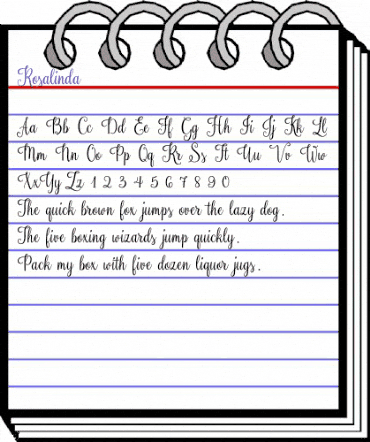 Rosalinda
Aa Bb Cc Dd Ee Ff Gg Hh Ii Jj Kk Ll
Mm Nn Oo Pp Qq Rr Ss Tt Uu Vv Ww
XxYy Zz 1 2 3 4 5 6 7 8 9 0
The quick brown fox jumps over the lazy dog.
The five boxing wizards jump quickly.
Pack my box with five dozen liquor jugs.